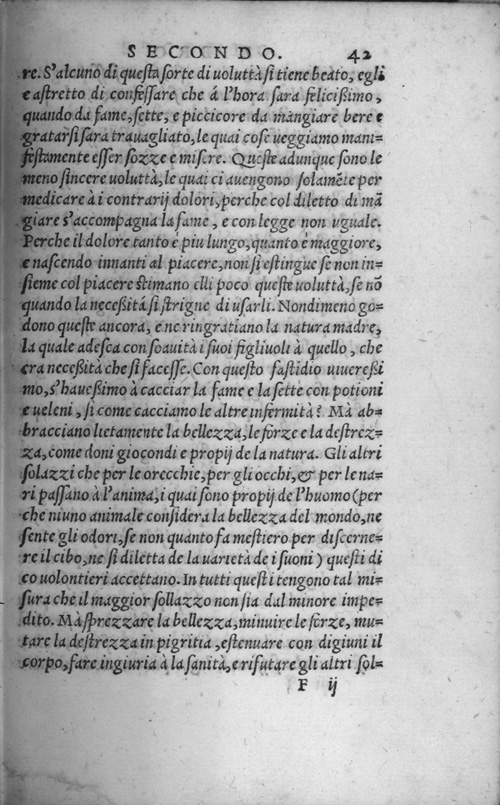 SECONDO. 42
re. S'alcuno di questa sorte di voluttà si tiene beato, egli
e astretto di confessare che á l'hora sara felicißimo,
quando da fame, sette, e piccicore da mangiare bere e
gratarsi sara trauagliato, le quai cose ueggiamo mani=
festamente esser sozze e misere. Queste adunque sono le
meno sincere uoluttà, le quai ci auengono solamẽte per
medicare à i contrarij dolori, perche col diletto di mã
giare s'accompagna la fame, e con legge non uguale.
Perche il dolore tanto è piu lungo, quanto è maggiore,
e nascendo innanti al piacere, non si estingue se non in=
sieme col piacere stimano elli poco queste uoluttà, se nõ
quando la necessità si strigne di usarli. Nondimeno go=
dono queste ancora, e ne ringratiano la natura madre,
la quale adesca con soauità i suoi figliuoli à quello, che
era necessità che si facesse. Con questo fastidio uiuereßi
mo, s'haueßimo à cacciar la fame e la sette con potioni
e ueleni, si come cacciamo le altre infermità? Mà ab=
bracciano lietamente la bellezza, le forze e la destrez=
za, come doni giocondi e propij de la natura. Gli altri
solazzi che per le orecchie, per gli occhi, & per le na=
ri passano à l'anima, i quai sono propij de l'huomo (per
che niuno animale considera la bellezza del mondo, ne
sente gli odori, se non quanto fa mestiero per discerne=
re il cibo, ne si diletta de la uarietà de i suoni) questi di
co uolontieri accettano. In tutti questi tengono tal mi=
sura che il maggior sollazzo non sia dal minore impe=
dito. Mà sprezzare la bellezza, minuire le forze, mu=
tare la destrezza in pigritia, estenuare con digiuni il
corpo, fare ingiuria à la sanità, e rifutare gli altri sol=
F ij